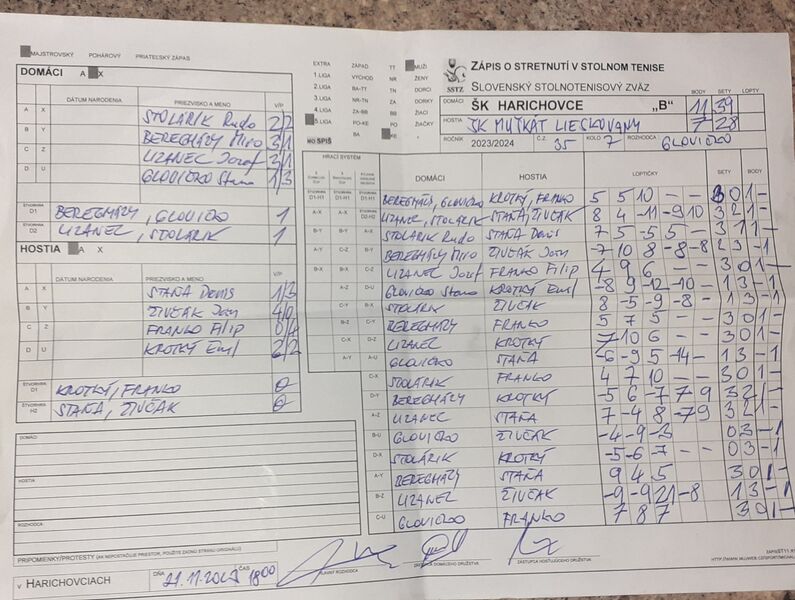 MAJSTROVSKÝ POHÁROVÝ PRIATEĽSKÝ ZÁPAS
DOMÁCI A X
DÁTUM NARODENIA PRIEZVISKO A MENO V/P
A X STOLÁRIK Rudo 2/2
B Y BEREGHÁZY Miro 3/1
C Z LIZANEC Jozef 3/1
D U GLOVIČKO Stano 1/3
ŠTVORHRA D1 BEREGHÁZY, GLOVIČKO 1
ŠTVORHRA D2 LIZANEC, STOLÁRIK 1
HOSTIA A X
DÁTUM NARODENIA PRIEZVISKO A MENO V/P
A X STAŇA Denis 1/3
B Y ŽIVČÁK Ján 4/0
C Z FRANKO Filip 0/4
D U KROTKÝ Emil 2/2
ŠTVORHRA KROTKÝ, FRANKO 0
ŠTVORHRA H2 STAŇA, ŽIVČÁK 0
DOMÁCI:
HOSTIA
ROZHODCA
PRIPOMIENKY/PROTESTY (AK NEPOSTAČUJE PRIESTOR, POUŽITE ZADNÚ STRANU ORIGINÁLU)
V HARICHOVCIACH DŇA 21.11.2023 ČAS 18:00
HLAVNÝ ROZHODCA ZÁSTUPCA DOMÁCEHO DRUŽSTVA ZÁSTUPCA HOSŤUJÚCEHO DRUŽSTVA
EXTRA ZÁPAD TT MUŽI
1.LIGA VÝCHOD NR ŽENY
2.LIGA BA-TT TN DORCI
3.LIGA NR-TN ZA DORKY
4.LIGA ZA-BB BB ŽIACI
5.LIGA PO-KE PO ŽIAČKY
BA KE
MO SPIŠ
SSTZ
ZÁPIS O STRETNUTÍ V STOLNOM TENISE
SLOVENSKÝ STOLNOTENISOVÝ ZVÄZ
BODY SETY LOPTY
DOMÁCI ŠK HARICHOVCE „B" 11 39
HOSTIA ŠK MUŠKÁT LIESKOVANY 7 28
ROČNÍK 2023/2024 Č.Z. 35 KOLO 7 ROZHODCA GLOVIČKO
HRACÍ SYSTÉM DOMÁCI HOSTIA LOPTIČKY SETY BODY LOPTY
BEREGHÁZY, GLOVIČKO KROTKÝ, FRANKO 5 5 10 – – 3 0 1 –
LIZANEC, STOLÁRIK STAŇA, ŽIVČÁK 8 4 -11 -9 10 3 2 1 -
A-X B-Y STOLÁRIK Rudo STAŇA Denis 7 5 -5 5 – 3 1 1 –
BEREGHÁZY Miro ŽIVČÁK Ján -7 10 8 -8 -8 2 3 - 1
LIZANEC Jozef FRANKO Filip 4 9 6 – – 3 0 1 –
GLOVIČKO Stano KROTKÝ Emil -8 9 -12 -10 – 1 3 - 1
STOLÁRIK ŽIVČÁK 8 -5 -9 -8 - 1 3 - 1
BEREGHÁZY FRANKO 5 7 5 – – 3 0 1 –
LIZANEC KROTKÝ 7 10 6 – – 3 0 1 –
GLOVIČKO STAŇA -6 -9 5 -14 – 1 3 - 1
C-X STOLÁRIK FRANKO 4 7 10 – – 3 0 1 –
D-Y BEREGHÁZY KROTKÝ -5 6 -7 7 9 3 2 1 -
A-Z LIZANEC STAŇA 7 -4 8 -7 9 3 2 1 -
B-U GLOVIČKO ŽIVČÁK -4 -9 -3 0 3 - 1
D-X STOLÁRIK KROTKÝ -5 -6 -7 – – 0 3 - 1
A-Y BEREGHÁZY STAŇA 9 4 5 3 0 1 –
B-Z LIZANEC ŽIVČÁK -9 -9 21 -8 1 3 - 1
C-U GLOVIČKO FRANKO 7 8 7 3 0 1 –